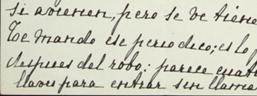 si avienen, pero se ve tiene
Te mando ese periodico; es lo
despues del robo; parece cuat
llaves para entrar sin llama